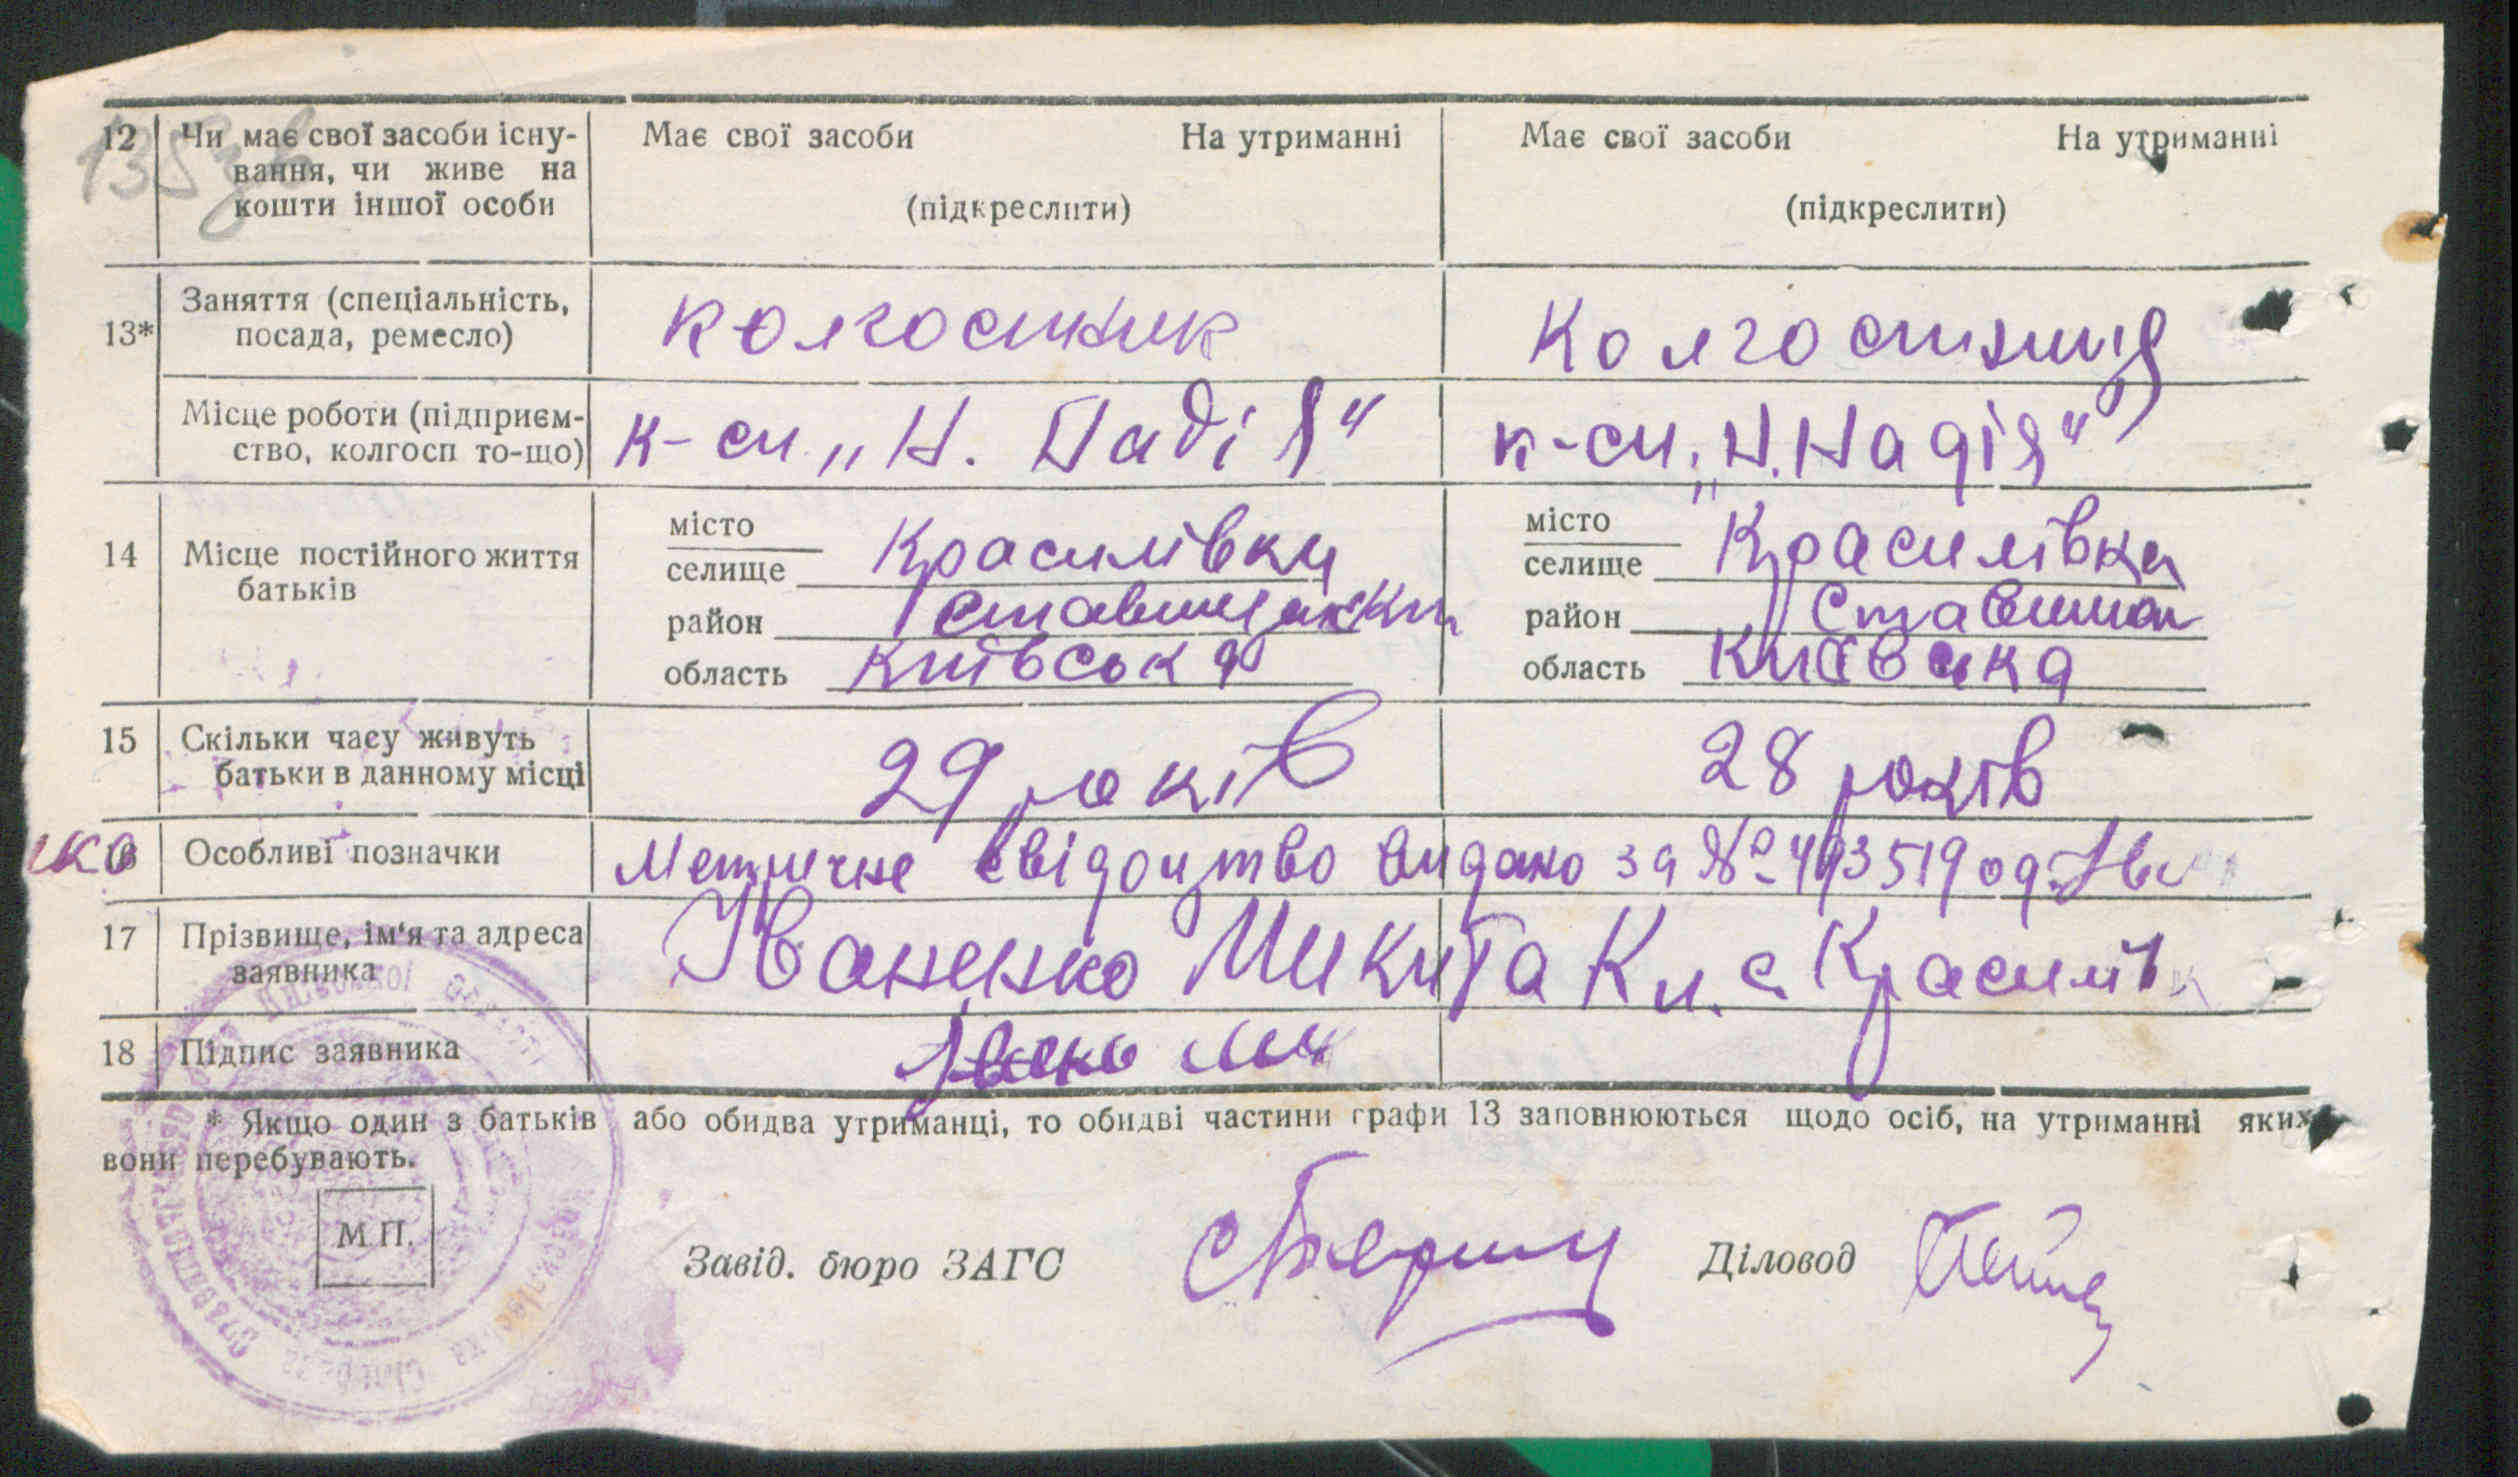 135 зв
12 Чи має свої засоби існу-
вання, чи живе на
кошти іншої особи
Має свої засоби На утриманні
(підкреслити)
Має свої засоби На утриманні
(підкреслити)
13* Заняття (спеціальність,
посада, ремесло)
колгоспник
колгоспниця
Місце роботи (підприєм-
ство, колгосп то-що)
к-сп „Н. Надія“
к-сп „Н. Надія“
14 Місце постійного життя
батьків
місто
селище Красилівка
район
область Київська
місто
селище Красилівка
район
область Київська
15 Скільки часу живуть
батьки в данному місці
29 років
28 років
16 Особливі позначки
Метричне свідоцтво видано за № 493519 од.
17 Прізвище, ім'я та адреса
заявника
Іваненко Микита Кл. с. Красилівк
18 Підпис заявника
* Якщо один з батьків або обидва утриманці, то обидві частини графи 13 заповнюються щодо осіб, на утриманні яких
вони перебувають.
М.П.
Завід. бюро ЗАГС
Діловод